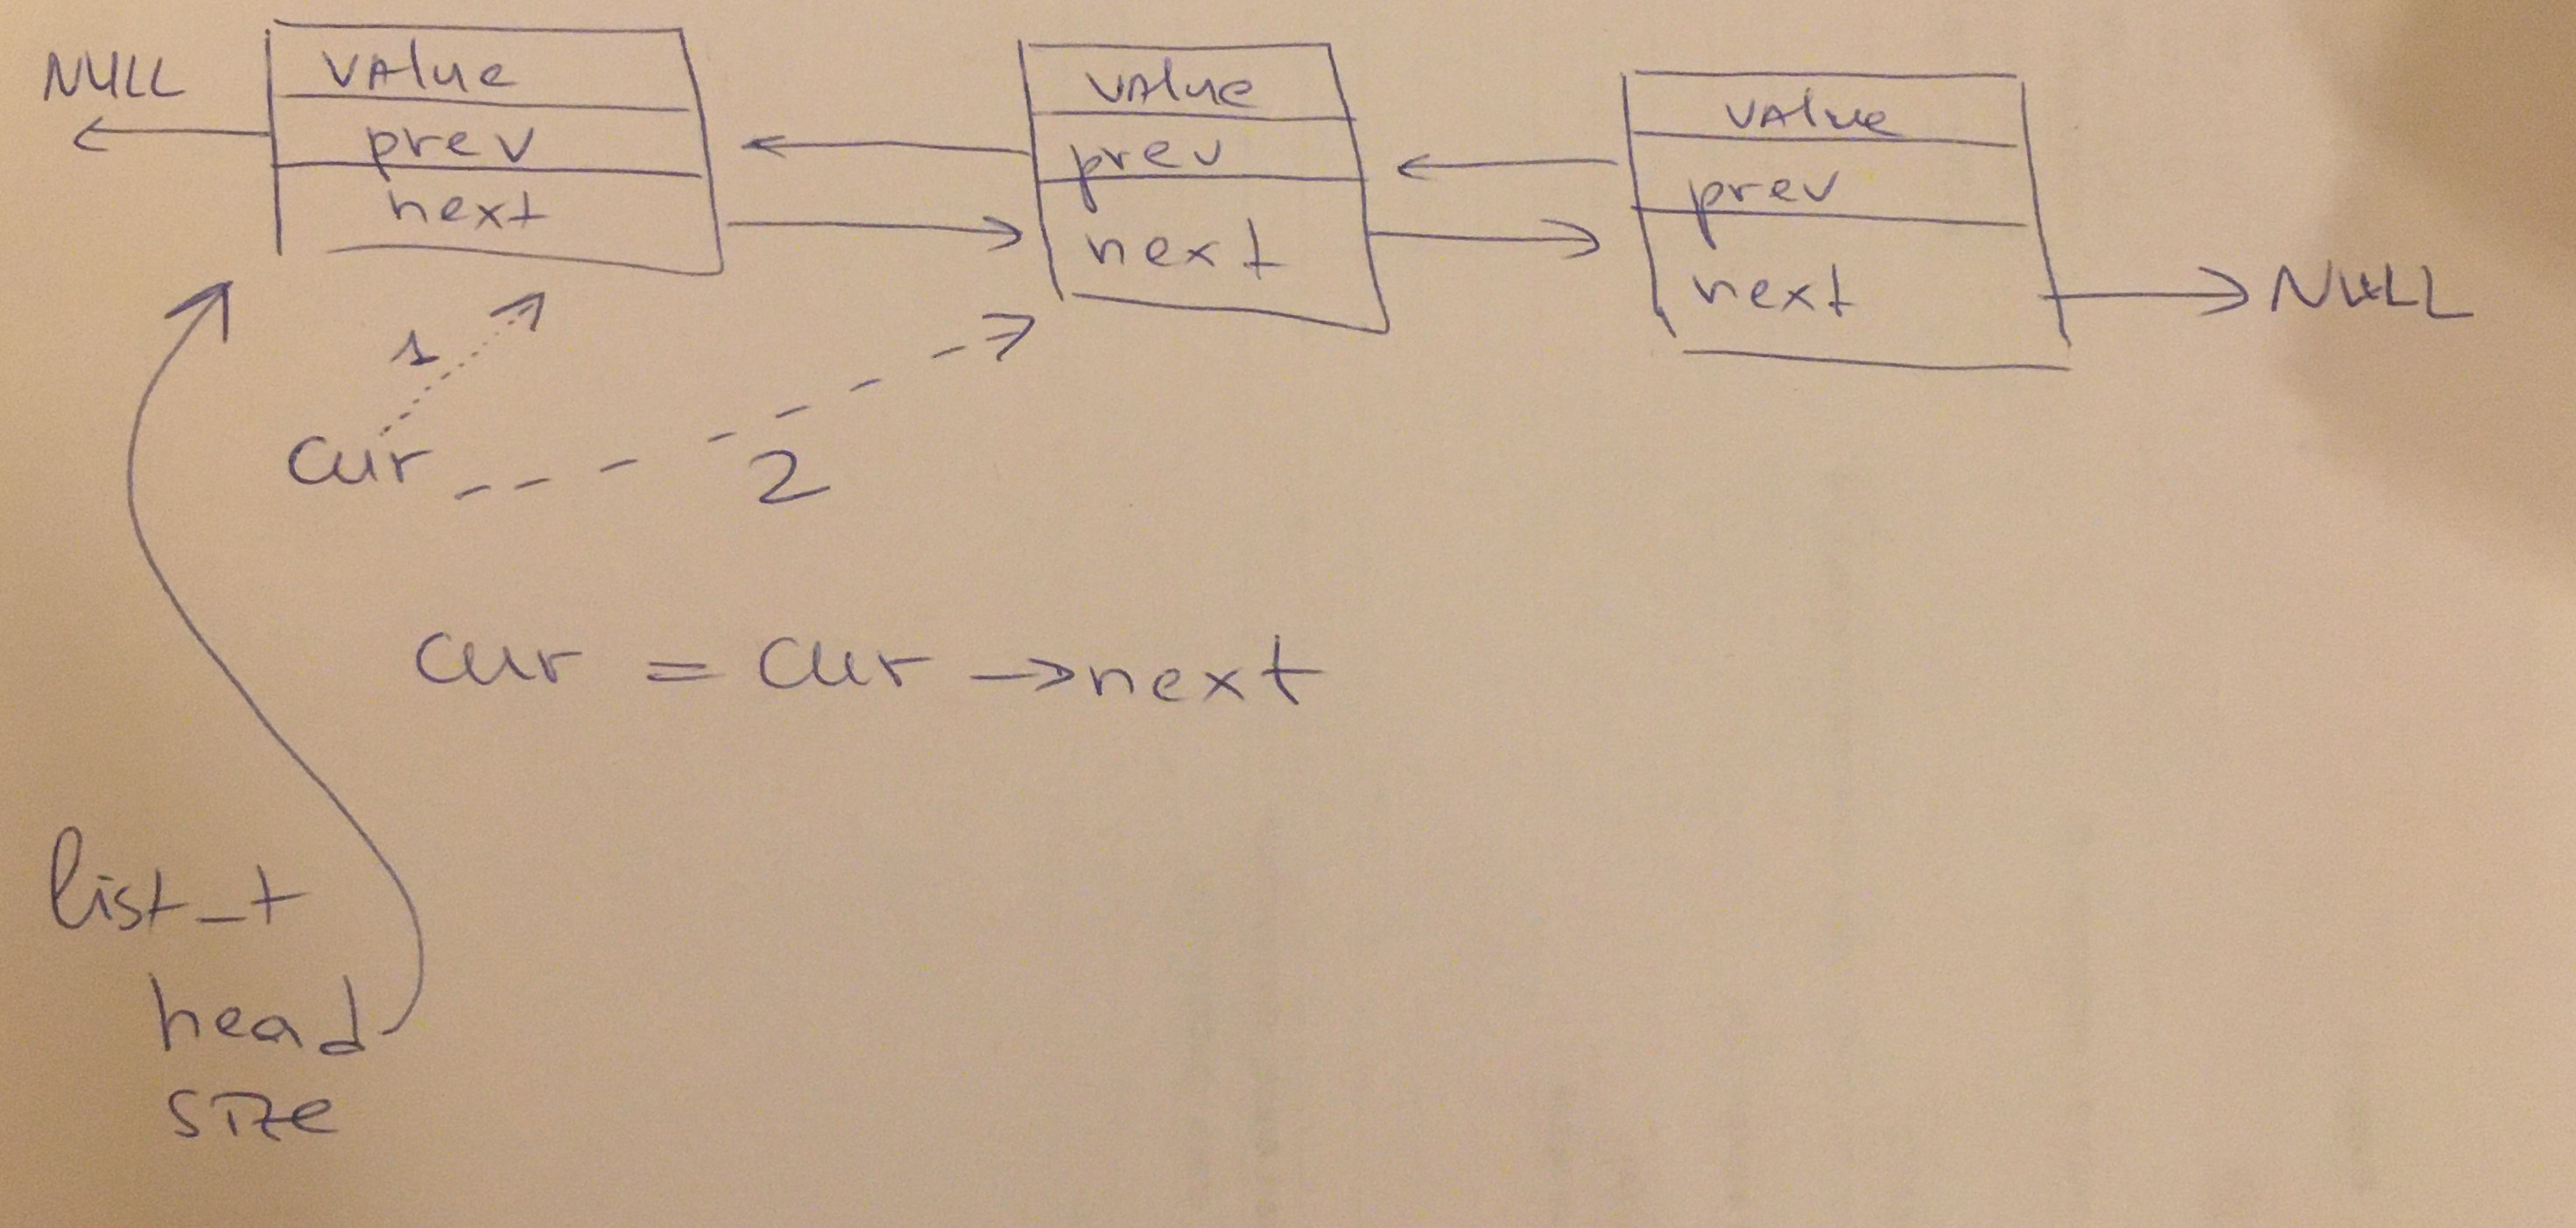 NULL
value
prev
next
value
prev
next
value
prev
next
NULL
1
cur
2
cur = cur → next
list_t
head
size